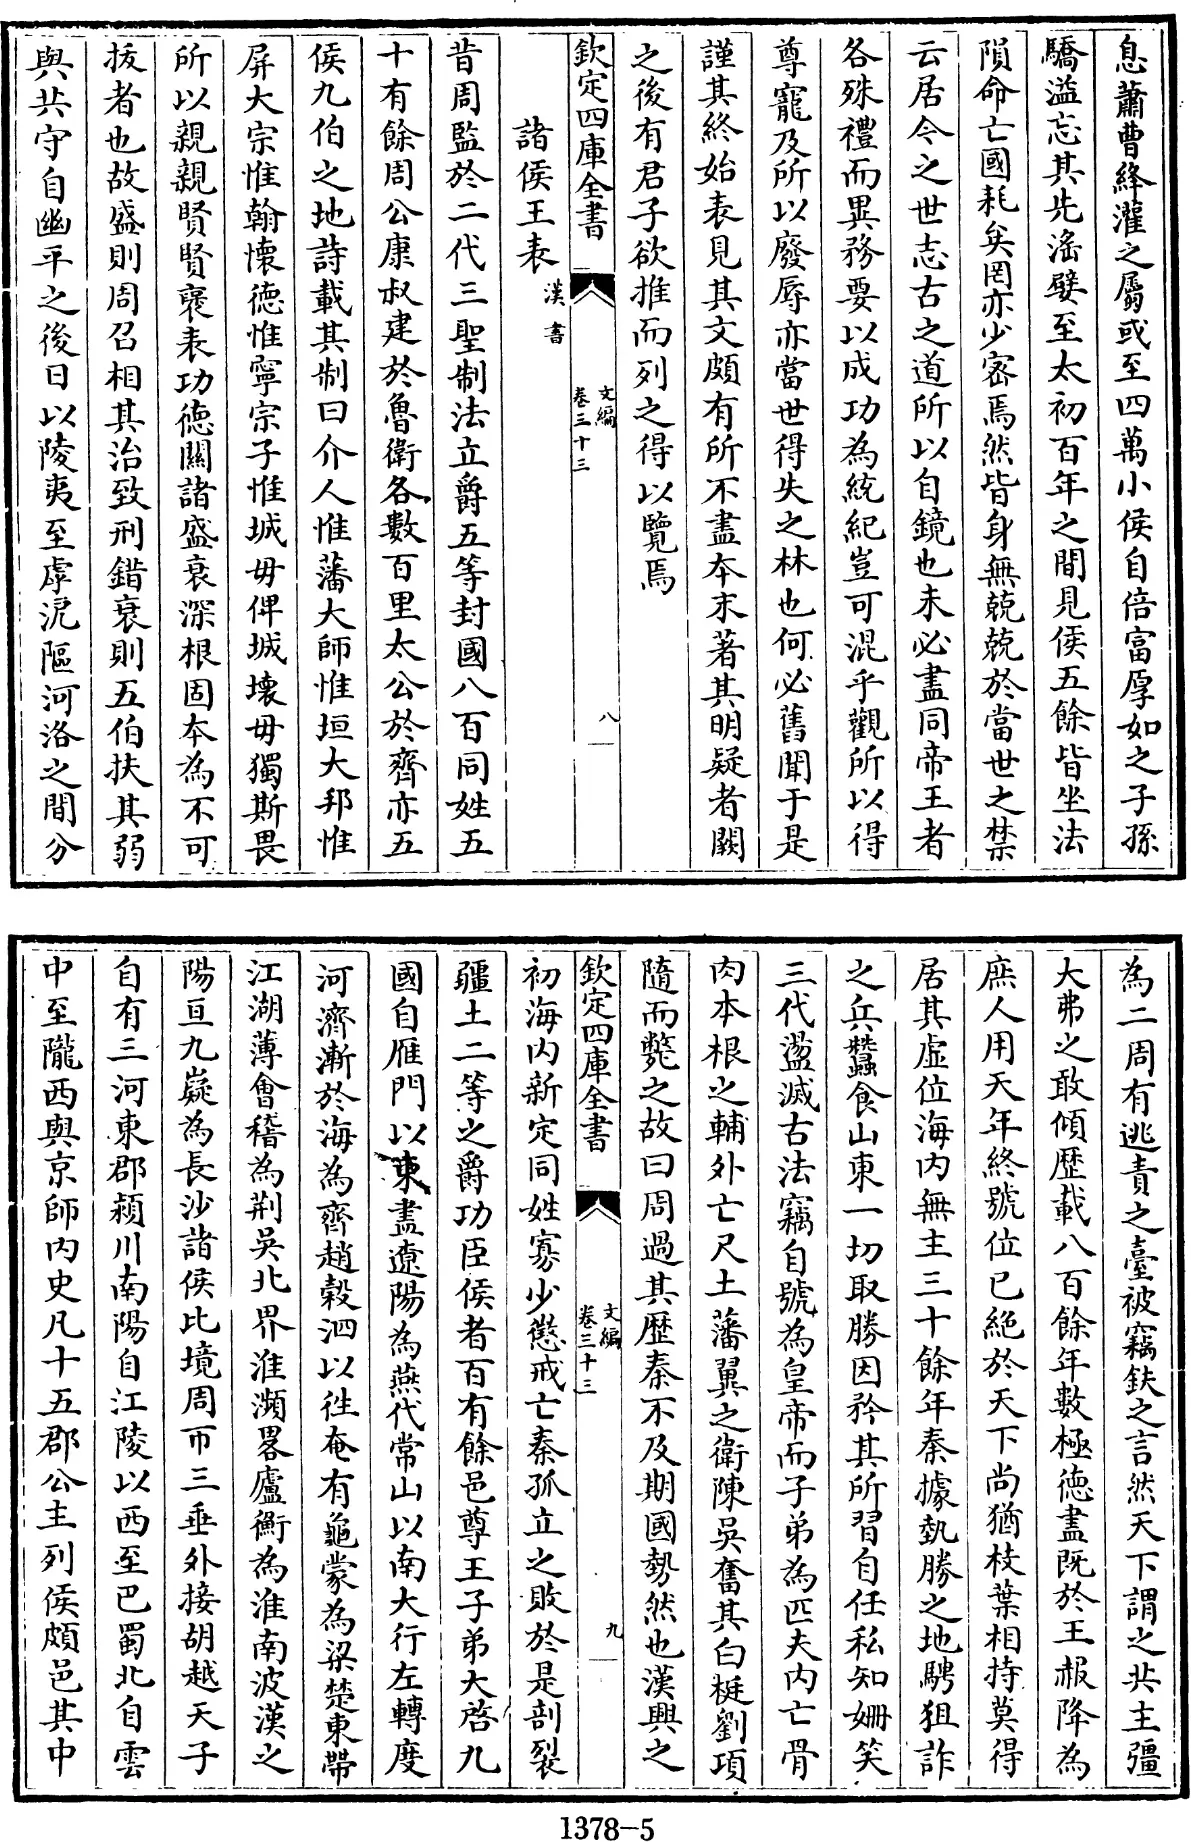 息蕭曹絳灌之屬或至四萬小侯自倍富厚如之子孫
驕溢忘其先滛嬖至太初百年之間見侯五餘皆坐法
隕命亡國耗矣罔亦少宻焉然皆身無兢兢於當世之禁
云居今之世志古之道所以自鏡也未必盡同帝王者
各殊禮而異務要以成功為統紀豈可混乎觀所以得
尊寵及所以廢辱亦當世得失之林也何必舊聞于是
謹其終始表見其文頗有所不盡本末著其明疑者闕
之後有君子欲推而列之得以覽焉
欽定四庫全書
文編
卷三十三
八
諸侯王表 漢書
昔周監於二代三聖制法立爵五等封國八百同姓五
十有餘周公康叔建於魯衛各數百里太公於齊亦五
侯九伯之地詩載其制曰介人惟藩大師惟垣大邦惟
屏大宗惟翰懷德惟寧宗子惟城毋俾城壞毋獨斯畏
所以親親賢賢襃表功德關諸盛衰深根固本為不可
拔者也故盛則周召相其治致刑錯衰則五伯扶其弱
與共守自幽平之後日以陵夷至虖阸𨻳河洛之間分
為二周有逃責之臺被竊鈇之言然天下謂之共主彊
大弗之敢傾歴載八百餘年數極德盡既於王赧降為
庶人用天年終號位已絶於天下尚猶枝葉相持莫得
居其虛位海内無主三十餘年秦據埶勝之地騁狙詐
之兵蠶食山東一切取勝因矜其所習自任私知姍笑
三代盪滅古法竊自號為皇帝而子弟為匹夫内亡骨
肉本根之輔外亡尺土藩翼之衛陳吳奮其白梃劉項
隨而斃之故曰周過其歴秦不及期國勢然也漢興之
欽定四庫全書
文編
卷三十三
九
初海内新定同姓寡少懲戒亡秦孤立之敗於是剖裂
疆土二等之爵功臣侯者百有餘邑尊王子弟大啓九
國自雁門以東盡遼陽為燕代常山以南大行左轉度
河濟漸於海為齊趙榖泗以徃奄有龜蒙為梁楚東帶
江湖薄會稽為荆吳北界淮瀕畧廬衡為淮南波漢之
陽亘九嶷為長沙諸侯比境周帀三垂外接胡越天子
自有三河東郡潁川南陽自江陵以西至巴蜀北自雲
中至隴西與京師内史凡十五郡公主列侯頗邑其中
1378-5